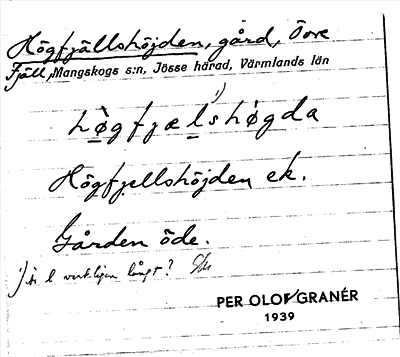 Högfjällshöjden, gård, Övre
Fjäll, Mangskogs s:n, Jösse härad, Värmlands län
1)
hö̀gfjælshø̀gda
Högfjellshöjden ek.
Gården öde.
1) är l verkligen långt?
PER OLOF GRANÉR
1939